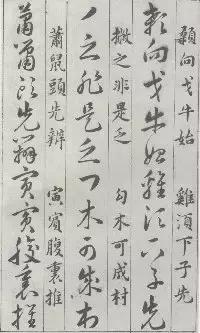 顙向戈牛始　雞須下子先
顙向戈牛始雞須下子先
撇之非是乏　勾木可成村
丿之非是乏勹木可成村
蕭鼠頭先辨　寅賓腹裏推
蕭鼠頭先辨寅賓腹裏推